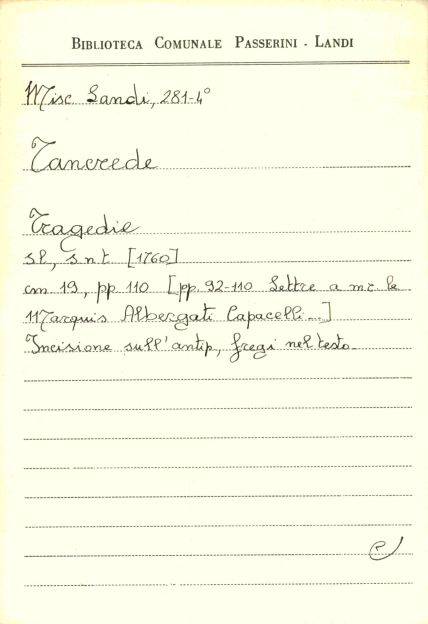 BIBLIOTECA COMUNALE PASSERINI - LANDI
Misc Landi, 281-4°
Tancrede
Tragedie
sl, s n t [1760]
cm 19, pp 110 [pp. 92-110 Lettre a mr. le
Marquis Albergati Capacelli...]
Incisione sull'antip, fregi nel testo.